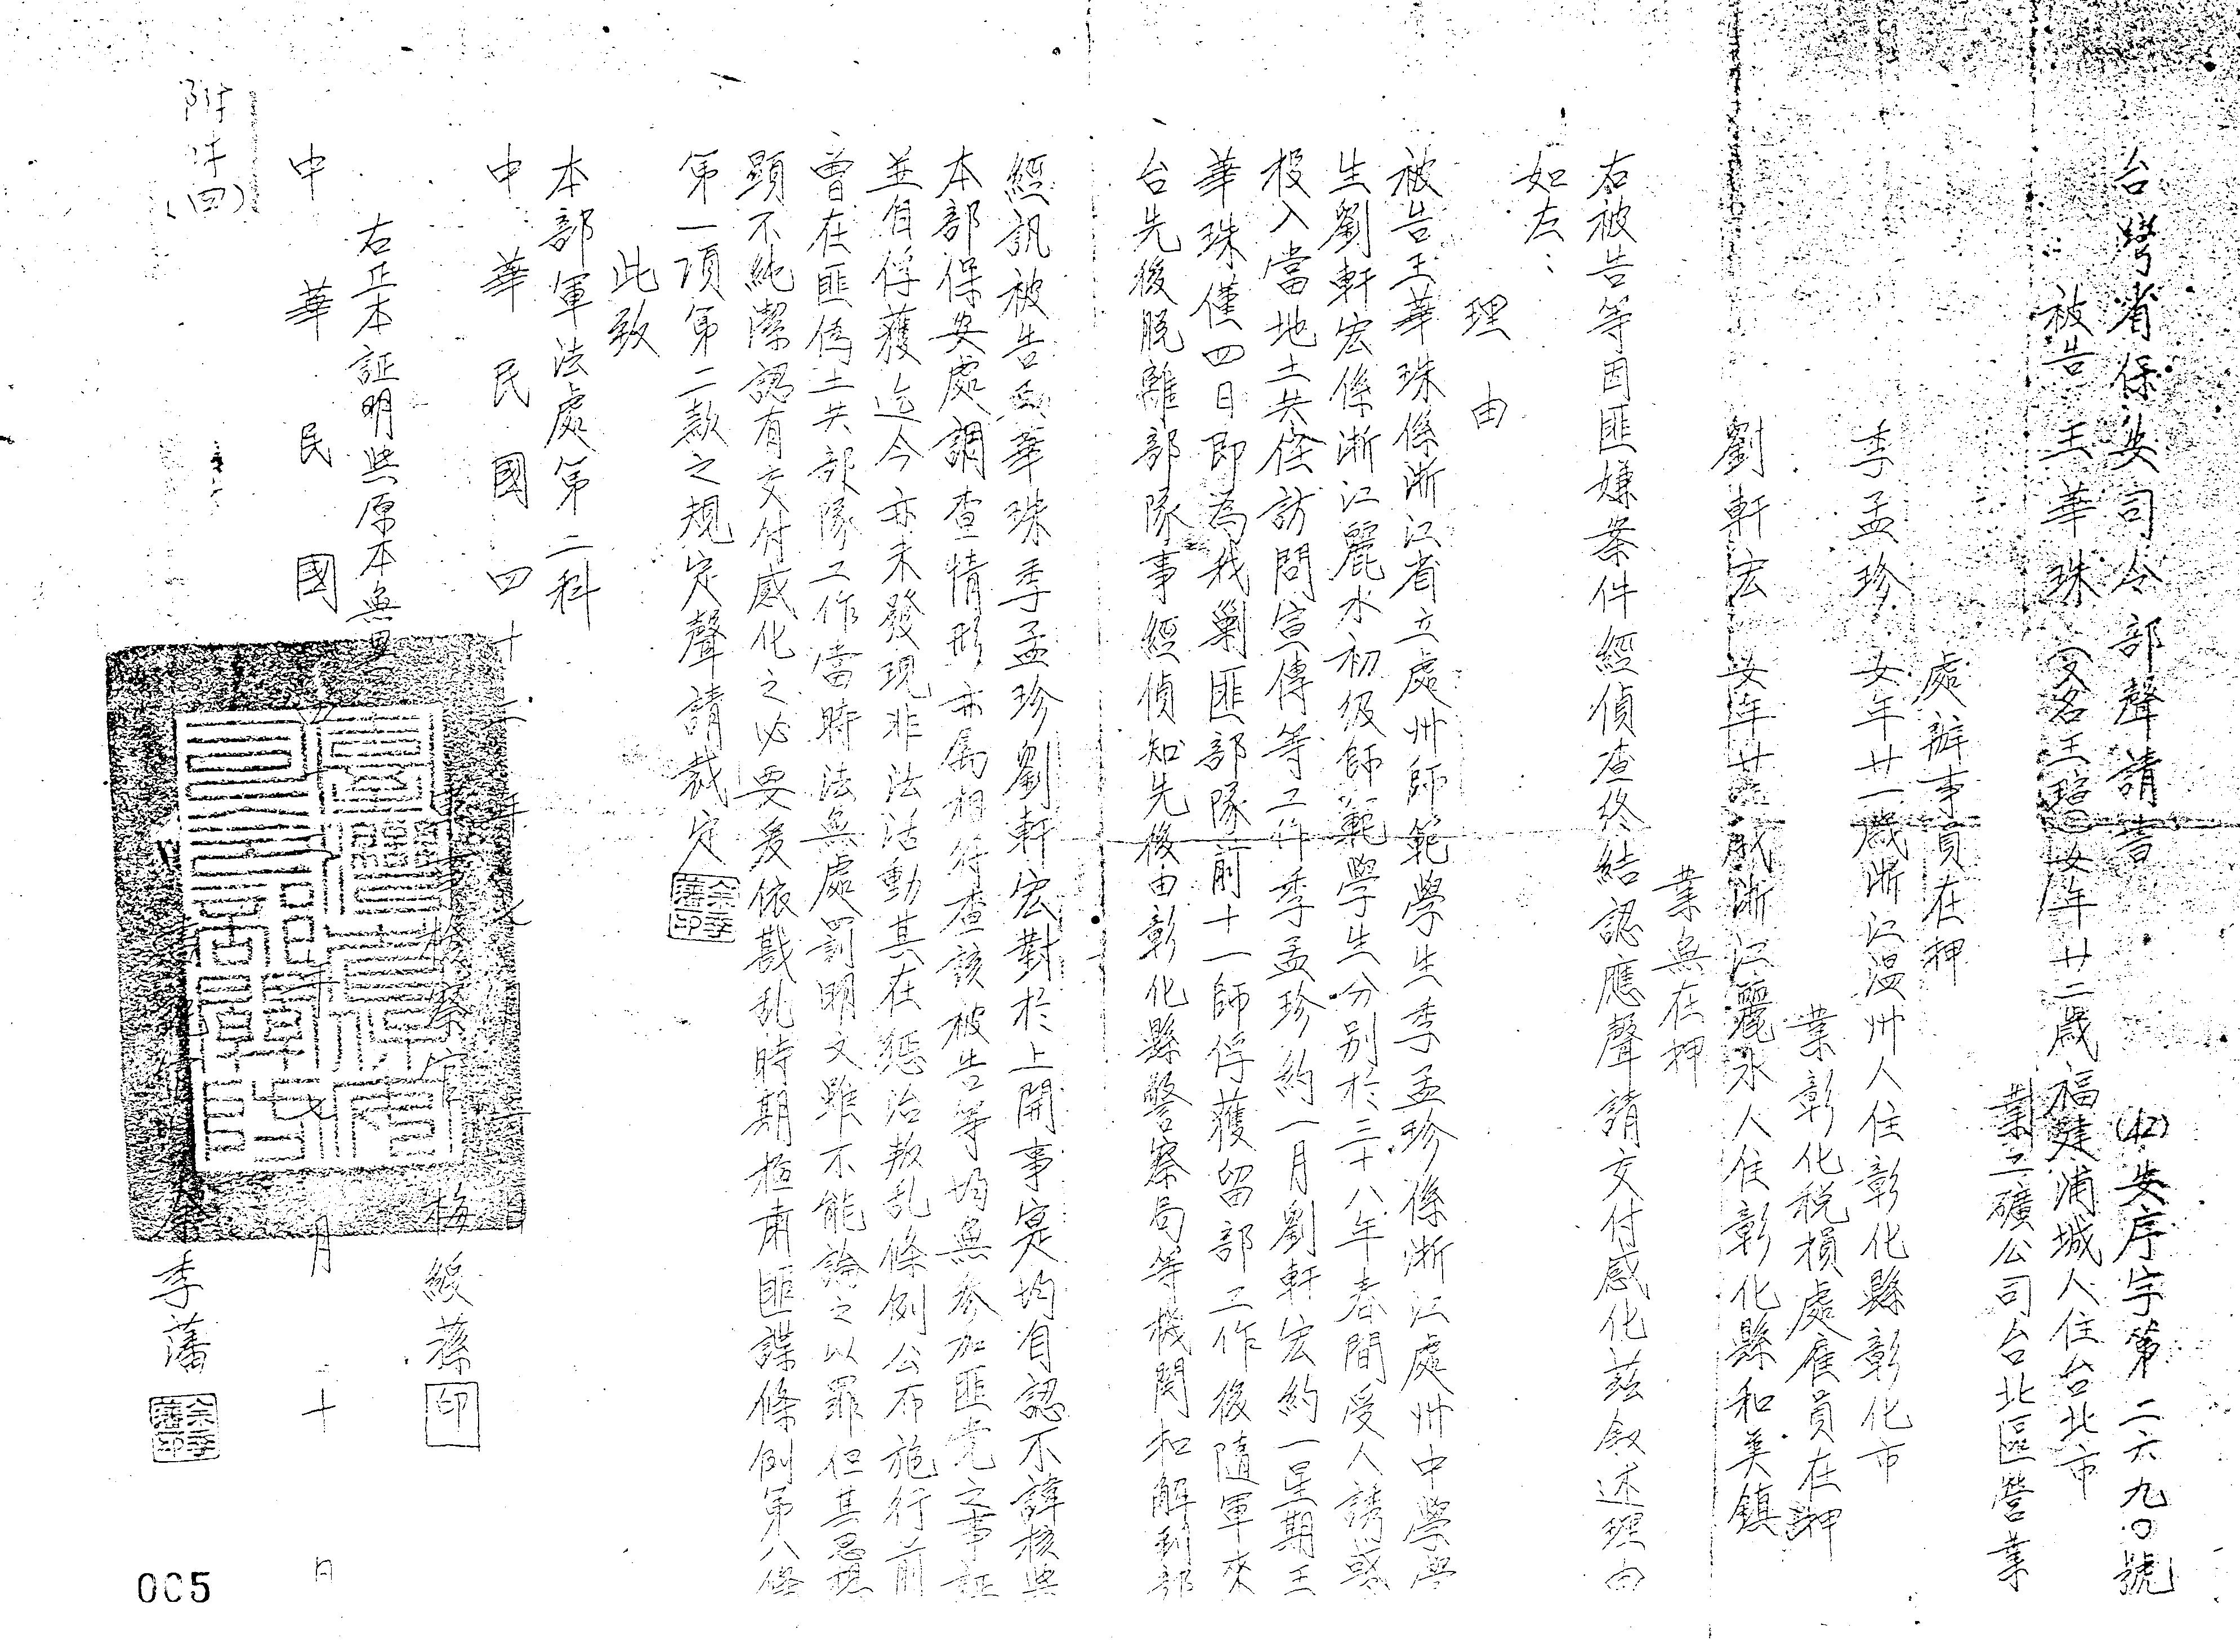 台灣省保安司令部聲請書 (42)安序字第二六九〇號
被告王華珠 女年廿二歲福建浦城人住台北市
業工礦公司台北區營業
處辦事員在押
季孟珍 女年廿一歲浙江溫州人住彰化縣彰化市
業彰化稅損處雇員在押
劉軒宏 女年廿歲浙江麗水人住彰化縣和美鎮
業無在押
右被告等因匪嫌案件經偵查終結認應聲請交付感化茲敘述理由
如左：
理由
被告王華珠係浙江省立處州師範學生季孟珍係浙江處州中學學
生劉軒宏係浙江麗水初級師範學生分別於三十八年春間受人誘惑
投入當地土共任訪問宣傳等工作季孟珍約一月劉軒宏約一星期王
華珠僅四日即為我剿匪部隊前十一師俘獲留部工作後隨軍來
台先後脫離部隊事經偵知先後由彰化縣警察局等機關和解到部
經訊被告王華珠季孟珍劉軒宏對於上開事實均自認不諱核與
本部保安處調查情形亦屬相符查該被告等均無參加匪党之事証
並自俘獲迄今亦未發現非法活動其在懲治叛乱條例公布施行前
曾在匪偽土共部隊工作當時法無處罰明文雖不能論之以罪但其思想
顯不純潔認有交付感化之必要爰依戡乱時期檢肅匪諜條例第八條
第一項第二款之規定聲請裁定 余季藩印
此致
本部軍法處第二科
中華民國四十二年
軍事檢察官 梅綬蓀 印
右正本証明與原本無異
中華民國 年 月 二十 日
余季藩 余季藩印
附件(四)
005